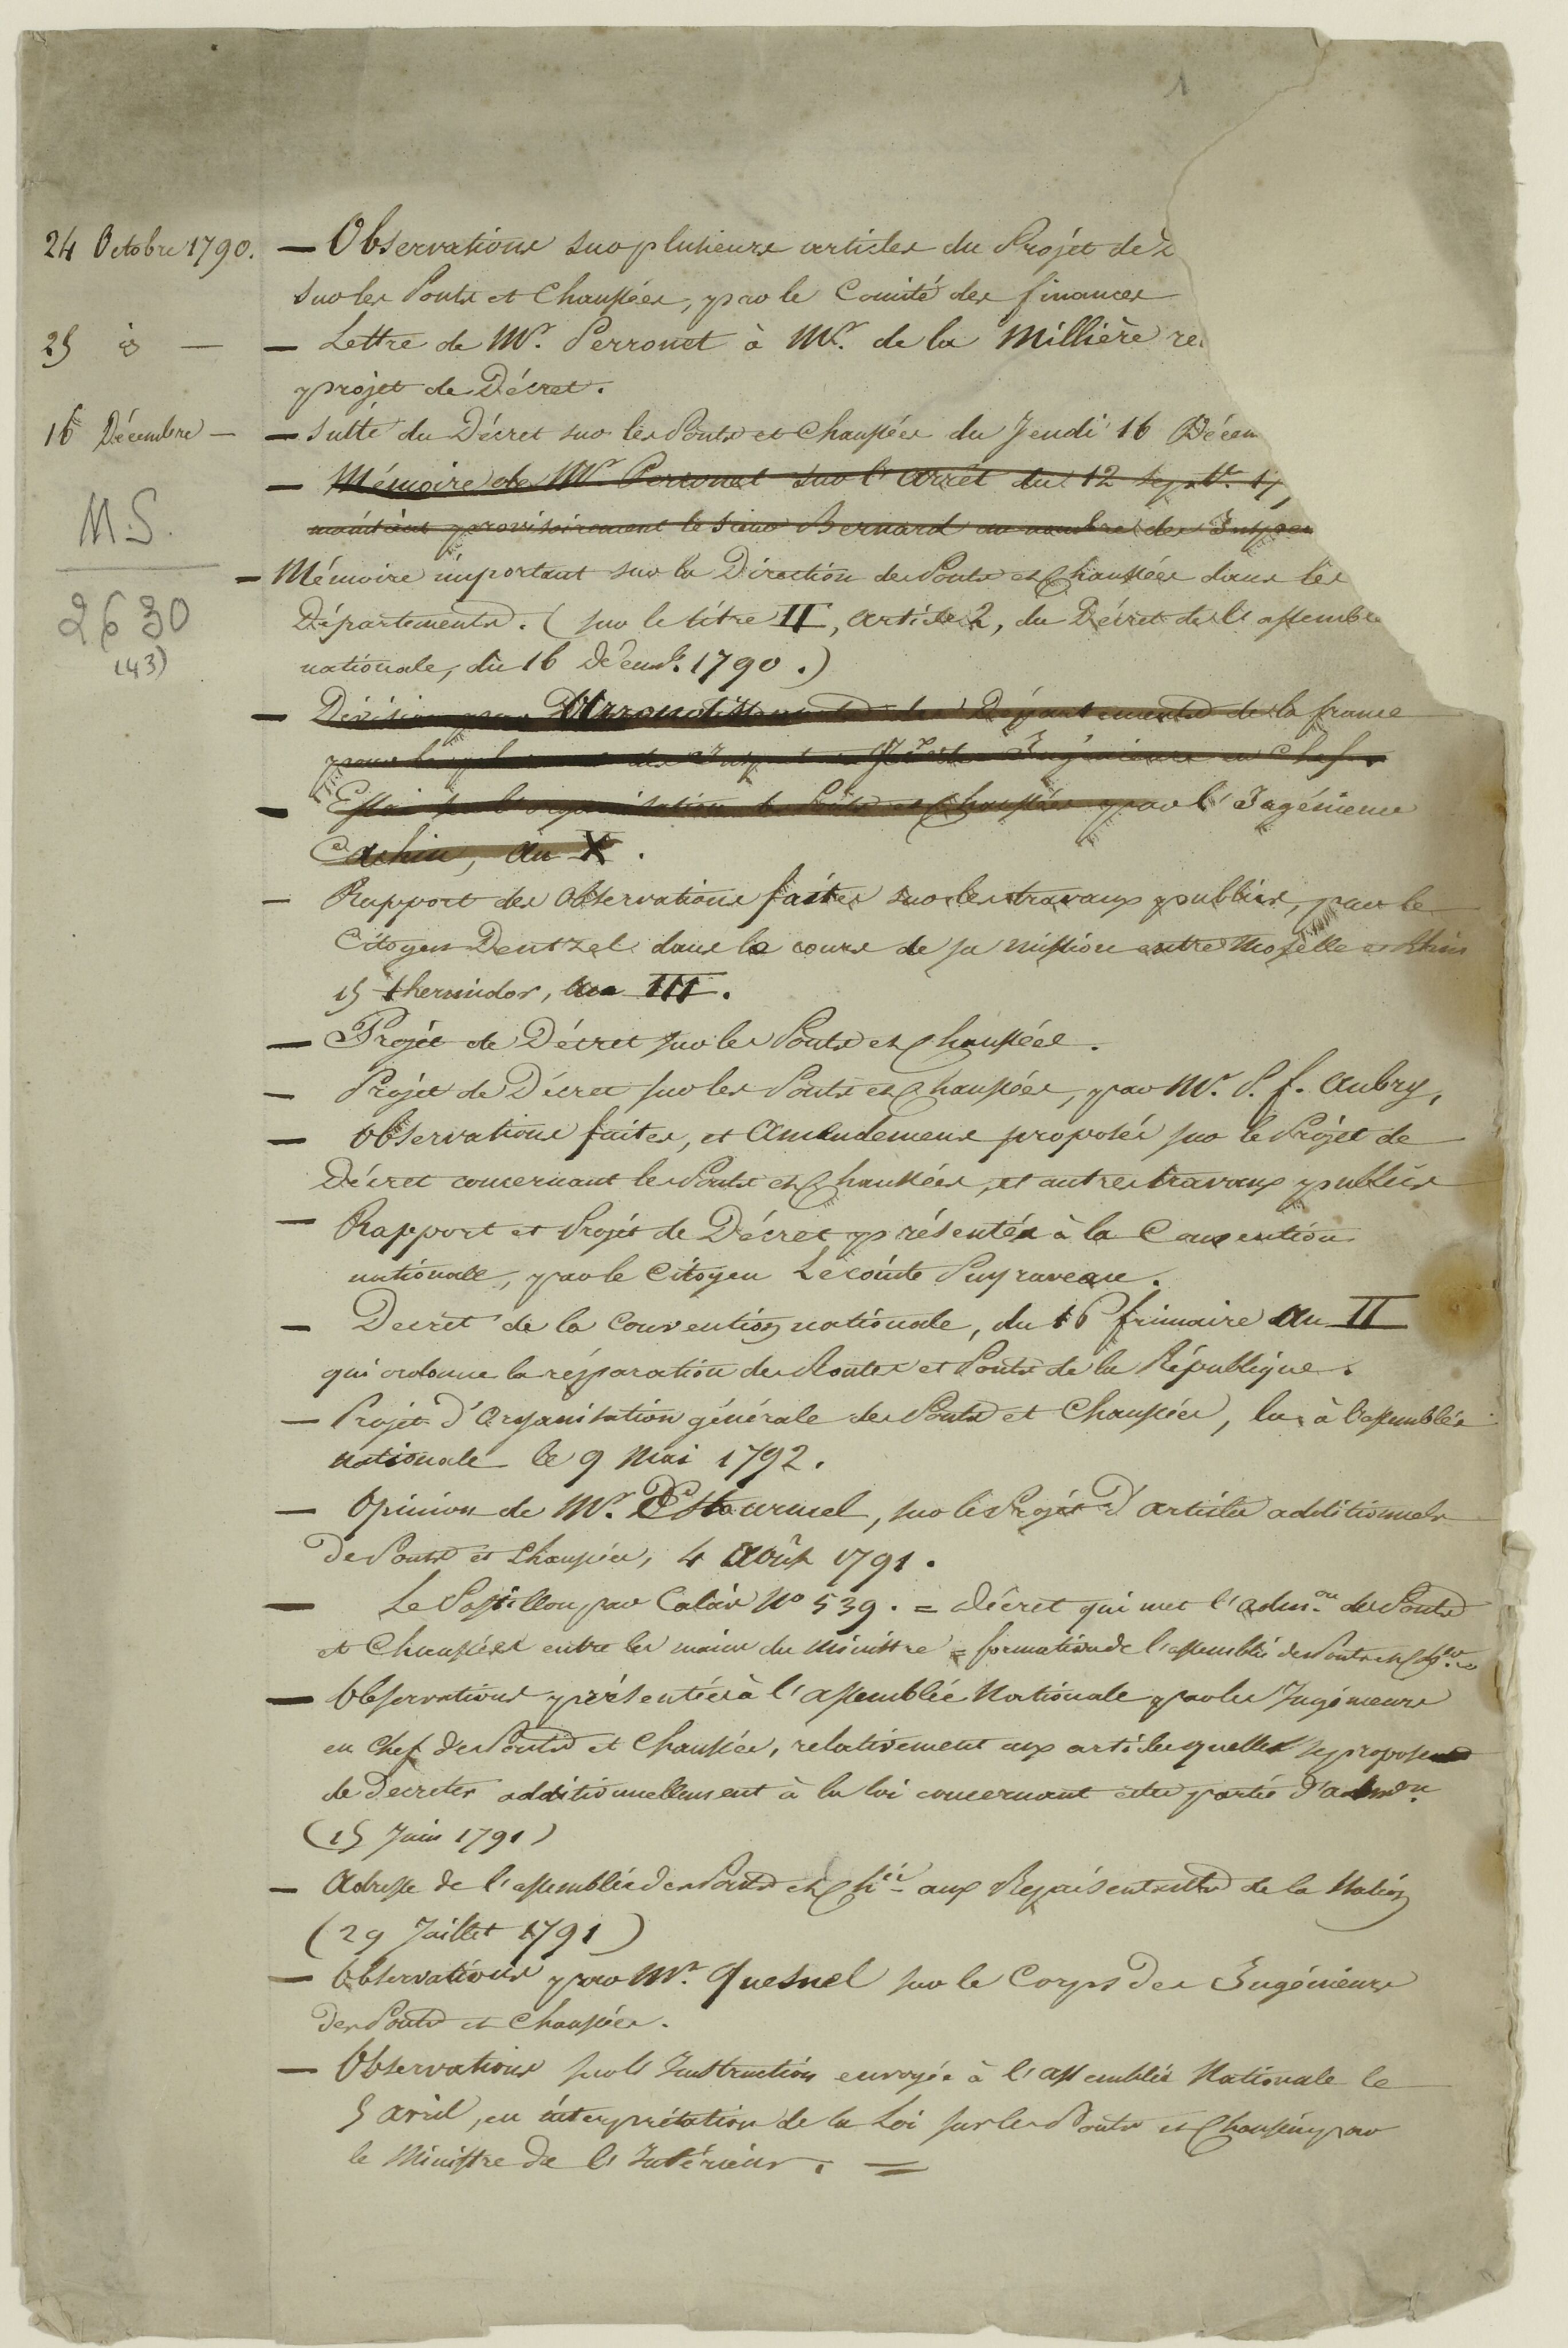 1
24 Octobre 1790. — Observations sur plusieurs articles du Projet de
sur les Ponts et Chaussées, par le Comité des finances
25 id — — Lettre de Mr. Perronet à Mr. de la Millière re
projet de Décret.
16 Décembre — — Suite du Décret sur les Ponts et Chaussées du Jeudi 16 Décem
— Mémoire de Mr Perronet sur l'arrêt du 12 Sept. 17
maintient provisoirement le Sieur Bernard au nombre des Inspec
M.S.
— Mémoire important sur la Direction des Ponts et Chaussées dans les
2630
Départements. (sur le titre II, article 2, du Décret de l'assemblé
(43)
nationale, du 16 Décemb. 1790.)
— Division par Arrondissements des Départements de la france
pour le des Ingénieurs en Chef.
— Essai sur l'organisation des Ponts et Chaussées par l'Ingénieur
Cachin, an X.
— Rapport des observations faites sur les travaux publics, par le
Citoyen Dentzel dans le cours de sa mission entre Moselle et Rhin
15 thermidor, an III.
— Projet de Décret sur les Ponts et Chaussées.
— Projet de Décret sur les Ponts et Chaussées, par Mr. P. f. Aubry,
— Observations faites, et Amendemens proposés sur le Projet de
Décret concernant les Ponts et Chaussées, et autres travaux publics
— Rapport et Projet de Décret présentés à la Convention
nationale, par le Citoyen Lecointe Puyraveau.
— Decret de la Convention nationale, du 16 frimaire an II
qui ordonne la réparation des Routes et Ponts de la République.
— Projet d'Organisation générale des Ponts et Chaussées, lu à l'assemblée
nationale le 9 Mai 1792.
— Opinion de Mr. D'Estourmel, sur le Projet d'articles additionnels
des Ponts et Chaussées, 4 Août 1791.
— Le Postillon par Calais No 539. = Décret qui met l'admon. des Ponts
et Chaussées entre les mains du Ministre = formation de l'assemblée des Ponts et
— Observations présentées à l'assemblée Nationale par les Ingénieurs
en Chef des Ponts et Chaussées, relativement aux articles qu'elle se propose
de Decreter additionnellement à la loi concernant cette partie d'admon.
(15 Juin 1791)
— Adresse de l'assemblée des Ponts et Chées aux Représentants de la Nation
(29 Juillet 1791)
— Observations par Mr. Quesnel sur le Corps des Ingénieurs
des Ponts et Chaussées.
— Observations sur l'Instruction envoyée à l'assemblée Nationale le
5 avril, en interprétation de la Loi sur les Ponts et Chaussées par
le Ministre de l'Intérieur. =